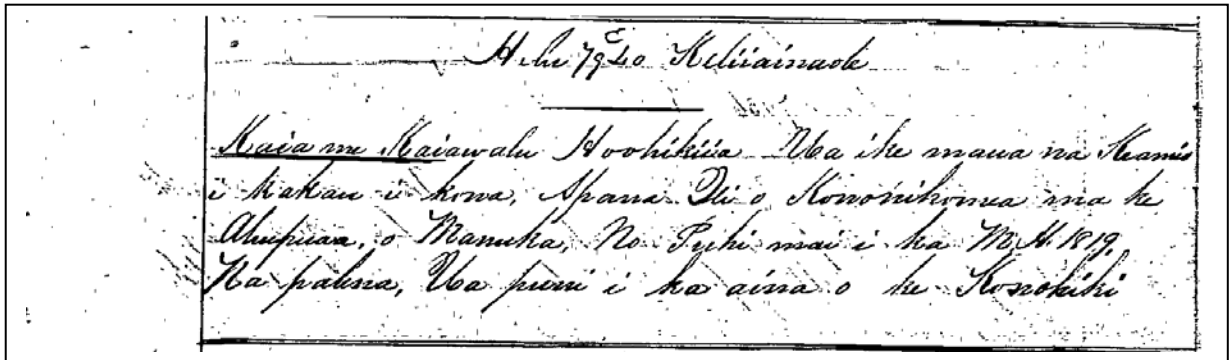 Helu 7940 C Keliiainaole
Kaia me Kaiawalu Hoohikiia Ua ike maua na
i kakau i kona, Apana Ili o ma ke
Ahupuaa, o Manuka, No Puhi mai i ka M.H. 1819.
Na palena, Ua puni i ka aina o ke Konohiki